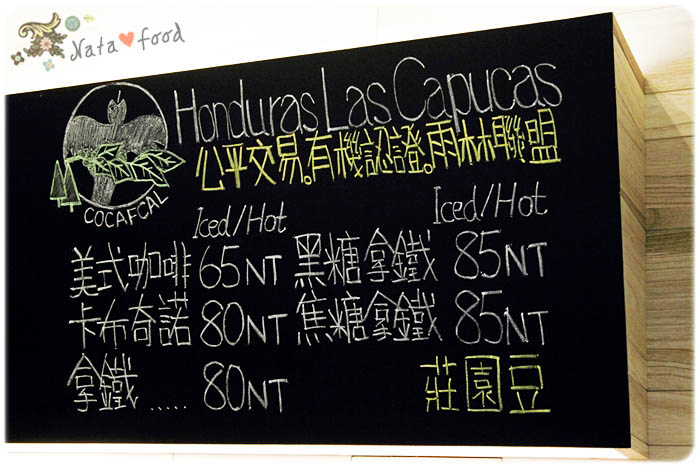 Nata❤food
Honduras Las Capucas
公平交易。有機認證。雨林聯盟
COCAFCAL
Iced/Hot
美式咖啡 65NT
卡布奇諾 80NT
拿鐵..... 80NT
Iced/Hot
黑糖拿鐵 85NT
焦糖拿鐵 85NT
莊園豆